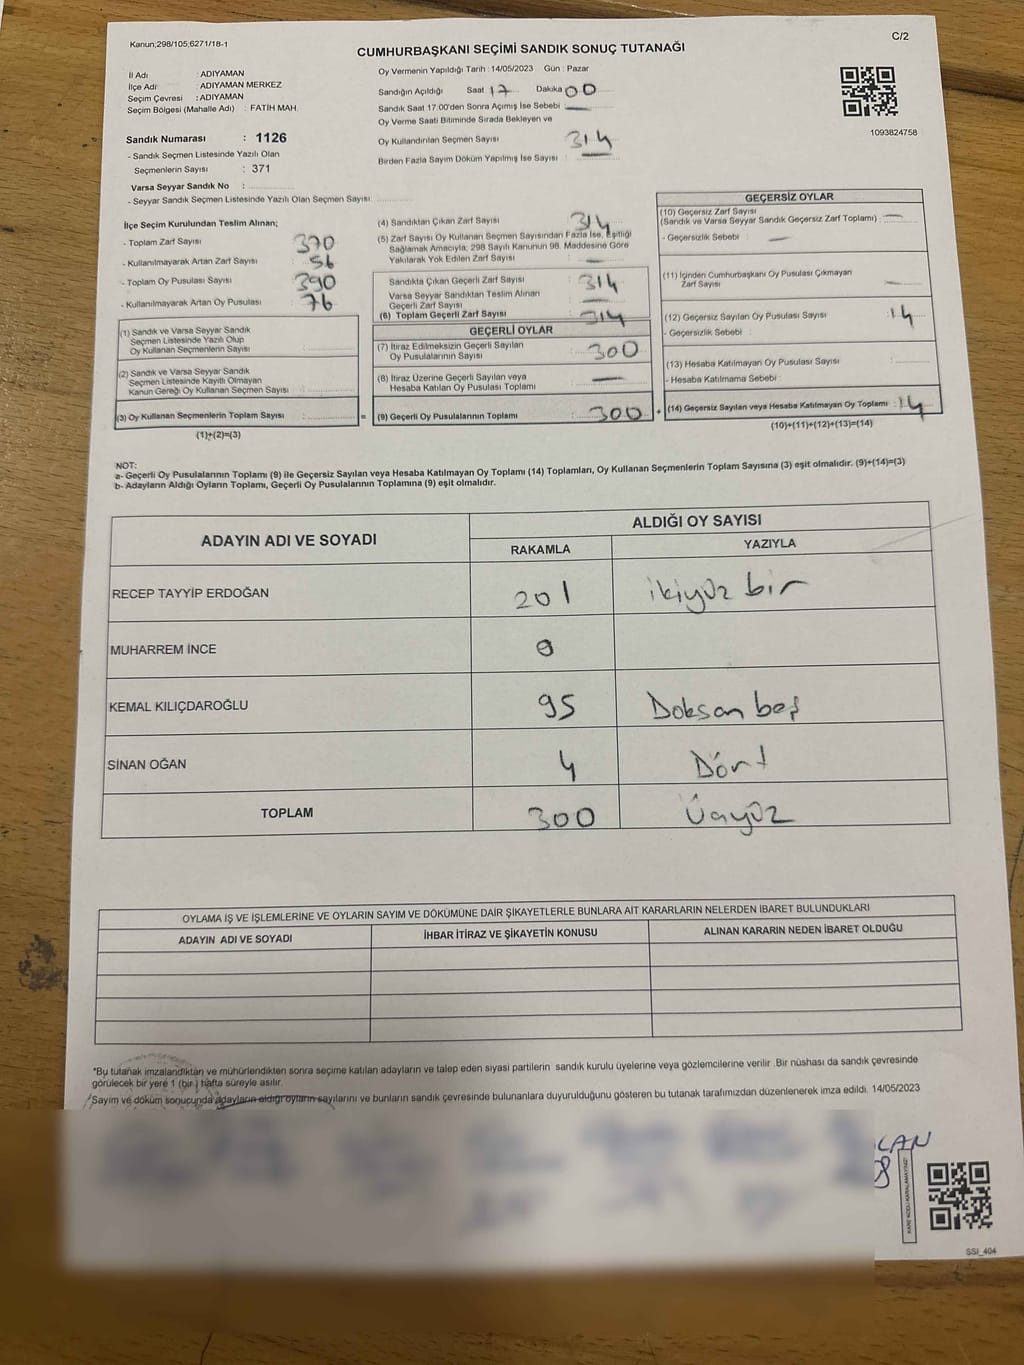 Kanun;298/105;6271/18-1
C/2
CUMHURBAŞKANI SEÇİMİ SANDIK SONUÇ TUTANAĞI
İl Adı : ADIYAMAN
İlçe Adı : ADIYAMAN MERKEZ
Seçim Çevresi : ADIYAMAN
Seçim Bölgesi (Mahalle Adı) : FATİH MAH.
Sandık Numarası : 1126
- Sandık Seçmen Listesinde Yazılı Olan
Seçmenlerin Sayısı : 371
Varsa Seyyar Sandık No :
- Seyyar Sandık Seçmen Listesinde Yazılı Olan Seçmen Sayısı:
Oy Vermenin Yapıldığı Tarih : 14/05/2023 Gün : Pazar
Sandığın Açıldığı Saat 17 Dakika 00
Sandık Saat 17:00'den Sonra Açılmış İse Sebebi
Oy Verme Saati Bitiminde Sırada Bekleyen ve
Oy Kullandırılan Seçmen Sayısı 314
Birden Fazla Sayım Döküm Yapılmış İse Sayısı :
1093824758
İlçe Seçim Kurulundan Teslim Alınan;
- Toplam Zarf Sayısı 370
- Kullanılmayarak Artan Zarf Sayısı : 56
- Toplam Oy Pusulası Sayısı 390
- Kullanılmayarak Artan Oy Pusulası : 76
(1) Sandık ve Varsa Seyyar Sandık
Seçmen Listesinde Yazılı Olup
Oy Kullanan Seçmenlerin Sayısı :
(2) Sandık ve Varsa Seyyar Sandık
Seçmen Listesinde Kayıtlı Olmayan
Kanun Gereği Oy Kullanan Seçmen Sayısı :
(3) Oy Kullanan Seçmenlerin Toplam Sayısı :
(1)+(2)=(3)
=
(4) Sandıktan Çıkan Zarf Sayısı 314
(5) Zarf Sayısı Oy Kullanan Seçmen Sayısından Fazla İse, Eşitliği
Sağlamak Amacıyla; 298 Sayılı Kanunun 98. Maddesine Göre
Yakılarak Yok Edilen Zarf Sayısı :
Sandıkta Çıkan Geçerli Zarf Sayısı : 314
Varsa Seyyar Sandıktan Teslim Alınan
Geçerli Zarf Sayısı :
(6) Toplam Geçerli Zarf Sayısı : 314
GEÇERLİ OYLAR
(7) İtiraz Edilmeksizin Geçerli Sayılan
Oy Pusulalarının Sayısı : 300
(8) İtiraz Üzerine Geçerli Sayılan veya
Hesaba Katılan Oy Pusulası Toplamı :
(9) Geçerli Oy Pusulalarının Toplamı : 300
+
GEÇERSİZ OYLAR
(10) Geçersiz Zarf Sayısı
(Sandık ve Varsa Seyyar Sandık Geçersiz Zarf Toplamı) :
- Geçersizlik Sebebi :
(11) İçinden Cumhurbaşkanı Oy Pusulası Çıkmayan
Zarf Sayısı :
(12) Geçersiz Sayılan Oy Pusulası Sayısı : 14
- Geçersizlik Sebebi :
(13) Hesaba Katılmayan Oy Pusulası Sayısı :
- Hesaba Katılmama Sebebi :
(14) Geçersiz Sayılan veya Hesaba Katılmayan Oy Toplamı : 14
(10)+(11)+(12)+(13)=(14)
NOT:
a- Geçerli Oy Pusulalarının Toplamı (9) ile Geçersiz Sayılan veya Hesaba Katılmayan Oy Toplamı (14) Toplamları, Oy Kullanan Seçmenlerin Toplam Sayısına (3) eşit olmalıdır. (9)+(14)=(3)
b- Adayların Aldığı Oyların Toplamı, Geçerli Oy Pusulalarının Toplamına (9) eşit olmalıdır.
ADAYIN ADI VE SOYADI ALDIĞI OY SAYISI
RAKAMLA YAZIYLA
RECEP TAYYİP ERDOĞAN 201 ikiyüz bir
MUHARREM İNCE 0
KEMAL KILIÇDAROĞLU 95 Doksan beş
SİNAN OĞAN 4 Dört
TOPLAM 300 Üçyüz
OYLAMA İŞ VE İŞLEMLERİNE VE OYLARIN SAYIM VE DÖKÜMÜNE DAİR ŞİKAYETLERLE BUNLARA AİT KARARLARIN NELERDEN İBARET BULUNDUKLARI
ADAYIN ADI VE SOYADI İHBAR İTİRAZ VE ŞİKAYETİN KONUSU ALINAN KARARIN NEDEN İBARET OLDUĞU
*Bu tutanak imzalandıktan ve mühürlendikten sonra seçime katılan adayların ve talep eden siyasi partilerin sandık kurulu üyelerine veya gözlemcilerine verilir. Bir nüshası da sandık çevresinde
görülecek bir yere 1 (bir) hafta süreyle asılır.
Sayım ve döküm sonucunda adayların aldığı oyların sayılarını ve bunların sandık çevresinde bulunanlara duyurulduğunu gösteren bu tutanak tarafımızdan düzenlenerek imza edildi. 14/05/2023
KARE KODU KARALAMAYINIZ!
SSI_404